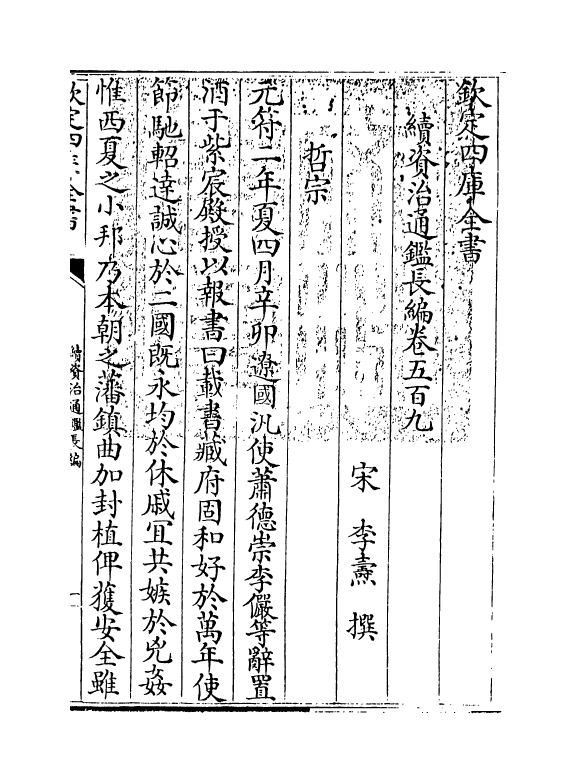 欽定四庫全書
續資治通鑑長編卷五百九
宋 李燾 撰
哲宗
元符二年夏四月辛卯遼國汎使蕭德崇李儼等辭置
酒于紫宸殿授以報書曰載書藏府固和好於萬年使
節馳軺達誠心於二國既永均於休戚宜共嫉於兇姦
惟西夏之小邦乃本朝之藩鎮曲加封植俾獲安全雖
欽定四庫全書
續資治通鑑長編
一